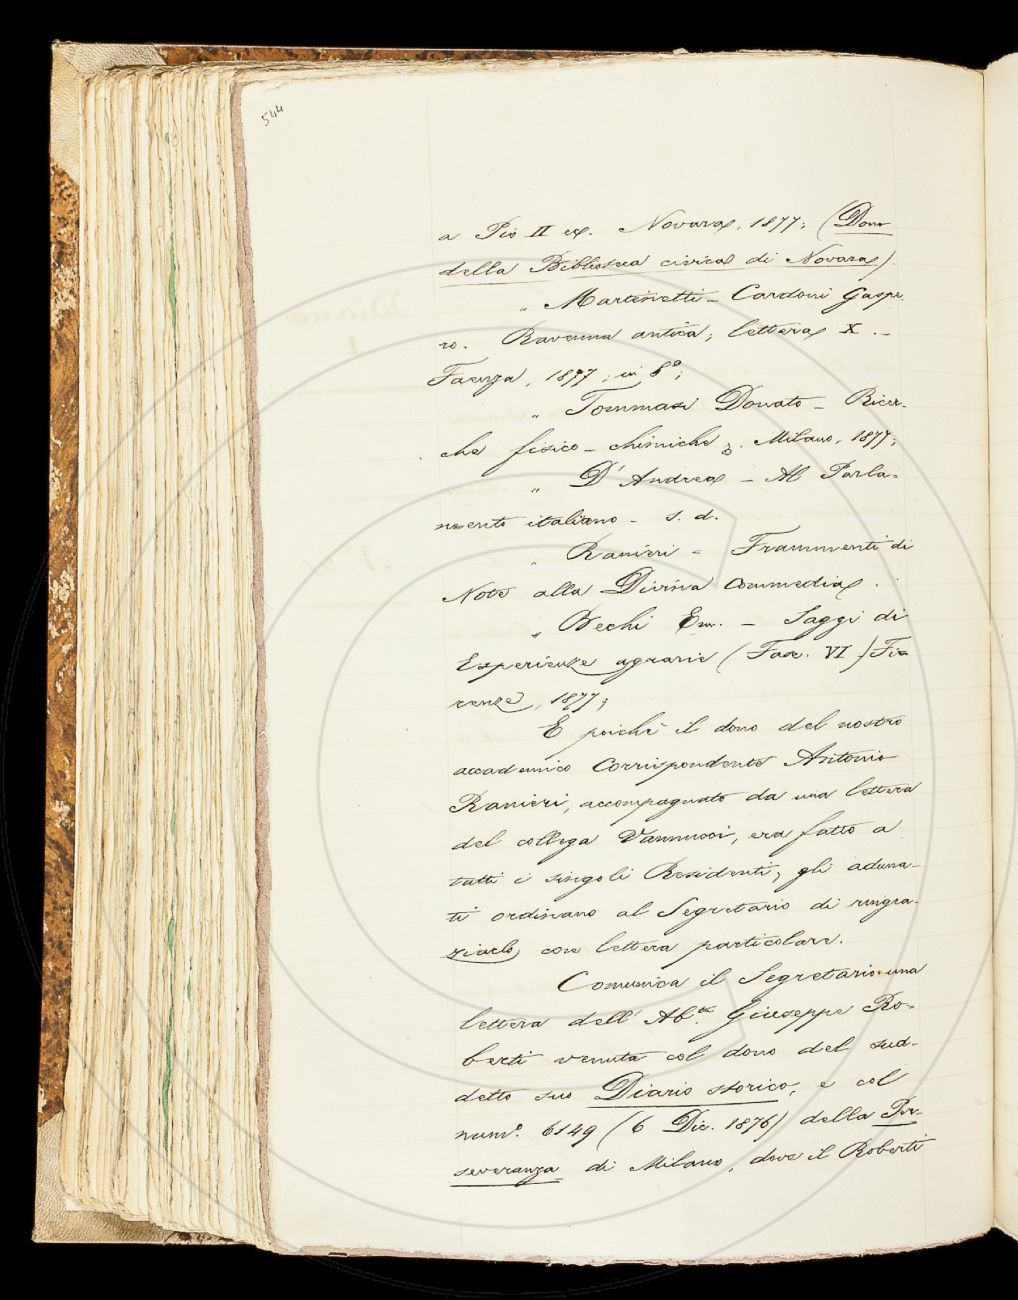 544
a Pio II ec. Novara, 1877; (Dono
della Biblioteca civica di Novara)
„ Martinetti - Cardoni Gaspe
ro. Ravenna antica; lettera X. -
Faenza, 1877; in 8°;
„ Tommasi Donato - Ricer-
che fisico-chimiche ec. Milano, 1877;
„ D'Andrea - Al Parla-
mento italiano - s. d.
„ Ranieri - Frammenti di
Note alla Divina Commedia.
„ Bechi Em. - Saggi di
Esperienze agrarie (Fasc. VI) Fi-
renze, 1877;
E poichè il dono del nostro
accademico Corrispondente Antonio
Ranieri, accompagnato da una lettera
del collega Vannucci, era fatto a
tutti i singoli Residenti, gli aduna-
ti ordinano al Segretario di ringra-
ziarlo con lettera particolare.
Comunica il Segretario una
lettera dell' Ab.te Giuseppe Ro-
berti venuta col dono del sud-
detto suo Diario storico, e col
num°. 6149 (6 Dic. 1876) della Per-
severanza di Milano, dove il Roberti